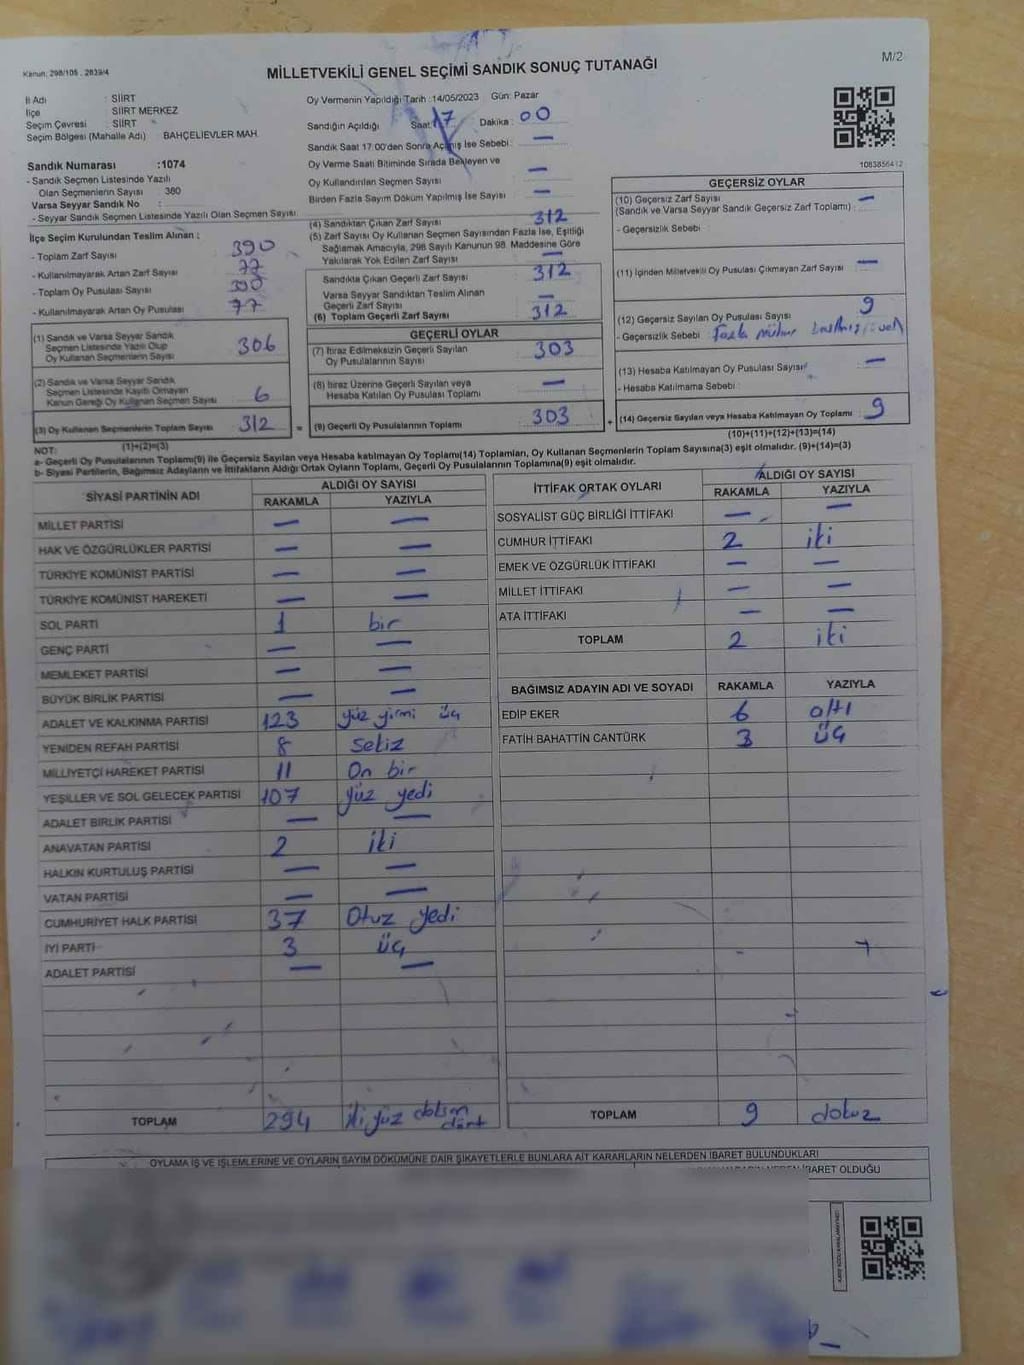 Kanun: 298/105, 2839/4
M/2
MİLLETVEKİLİ GENEL SEÇİMİ SANDIK SONUÇ TUTANAĞI
İl Adı : SİİRT
İlçe : SİİRT MERKEZ
Seçim Çevresi : SİİRT
Seçim Bölgesi (Mahalle Adı) BAHÇELİEVLER MAH.
Sandık Numarası :1074
- Sandık Seçmen Listesinde Yazılı
Olan Seçmenlerin Sayısı 380
Varsa Seyyar Sandık No :
- Seyyar Sandık Seçmen Listesinde Yazılı Olan Seçmen Sayısı:
İlçe Seçim Kurulundan Teslim Alınan :
- Toplam Zarf Sayısı 390
- Kullanılmayarak Artan Zarf Sayısı 77
- Toplam Oy Pusulası Sayısı 390
- Kullanılmayarak Artan Oy Pusulası 77
(1) Sandık ve Varsa Seyyar Sandık
Seçmen Listesinde Yazılı Olup
Oy Kullanan Seçmenlerin Sayısı 306
(2) Sandık ve Varsa Seyyar Sandık
Seçmen Listesinde Kayıtlı Olmayan
Kanun Gereği Oy Kullanan Seçmen Sayısı 6
(3) Oy Kullanan Seçmenlerin Toplam Sayısı 312
(1)+(2)=(3)
Oy Vermenin Yapıldığı Tarih :14/05/2023 Gün: Pazar
Sandığın Açıldığı Saat: 17 Dakika : 00
Sandık Saat 17:00'den Sonra Açılmış İse Sebebi: —
Oy Verme Saati Bitiminde Sırada Bekleyen ve
Oy Kullandırılan Seçmen Sayısı —
Birden Fazla Sayım Döküm Yapılmış İse Sayısı —
(4) Sandıktan Çıkan Zarf Sayısı 312
(5) Zarf Sayısı Oy Kullanan Seçmen Sayısından Fazla İse, Eşitliği
Sağlamak Amacıyla, 298 Sayılı Kanunun 98. Maddesine Göre
Yakılarak Yok Edilen Zarf Sayısı —
Sandıkta Çıkan Geçerli Zarf Sayısı 312
Varsa Seyyar Sandıktan Teslim Alınan
Geçerli Zarf Sayısı —
(6) Toplam Geçerli Zarf Sayısı 312
GEÇERLİ OYLAR
(7) İtiraz Edilmeksizin Geçerli Sayılan
Oy Pusulalarının Sayısı 303
(8) İtiraz Üzerine Geçerli Sayılan veya
Hesaba Katılan Oy Pusulası Toplamı —
= (9) Geçerli Oy Pusulalarının Toplamı 303 +
1083856412
GEÇERSİZ OYLAR
(10) Geçersiz Zarf Sayısı —
(Sandık ve Varsa Seyyar Sandık Geçersiz Zarf Toplamı)
- Geçersizlik Sebebi :
(11) İçinden Milletvekili Oy Pusulası Çıkmayan Zarf Sayısı —
(12) Geçersiz Sayılan Oy Pusulası Sayısı 9
- Geçersizlik Sebebi Fazla mühür
(13) Hesaba Katılmayan Oy Pusulası Sayısı —
- Hesaba Katılmama Sebebi :
(14) Geçersiz Sayılan veya Hesaba Katılmayan Oy Toplamı 9
(10)+(11)+(12)+(13)=(14)
NOT:
a- Geçerli Oy Pusulalarının Toplamı(9) ile Geçersiz Sayılan veya Hesaba katılmayan Oy Toplamı(14) Toplamları, Oy Kullanan Seçmenlerin Toplam Sayısına(3) eşit olmalıdır. (9)+(14)=(3)
b- Siyasi Partilerin, Bağımsız Adayların ve İttifakların Aldığı Ortak Oyların Toplamı, Geçerli Oy Pusulalarının Toplamına(9) eşit olmalıdır.
SİYASİ PARTİNİN ADI ALDIĞI OY SAYISI
RAKAMLA YAZIYLA
MİLLET PARTİSİ — —
HAK VE ÖZGÜRLÜKLER PARTİSİ — —
TÜRKİYE KOMÜNİST PARTİSİ — —
TÜRKİYE KOMÜNİST HAREKETİ — —
SOL PARTİ 1 bir
GENÇ PARTİ — —
MEMLEKET PARTİSİ — —
BÜYÜK BİRLİK PARTİSİ — —
ADALET VE KALKINMA PARTİSİ 123 yüz yirmi üç
YENİDEN REFAH PARTİSİ 8 sekiz
MİLLİYETÇİ HAREKET PARTİSİ 11 On bir
YEŞİLLER VE SOL GELECEK PARTİSİ 107 yüz yedi
ADALET BİRLİK PARTİSİ — —
ANAVATAN PARTİSİ 2 iki
HALKIN KURTULUŞ PARTİSİ — —
VATAN PARTİSİ — —
CUMHURİYET HALK PARTİSİ 37 Otuz yedi
İYİ PARTİ 3 üç
ADALET PARTİSİ — —
TOPLAM 294 iki yüz doksan dört
İTTİFAK ORTAK OYLARI ALDIĞI OY SAYISI
RAKAMLA YAZIYLA
SOSYALİST GÜÇ BİRLİĞİ İTTİFAKI — —
CUMHUR İTTİFAKI 2 iki
EMEK VE ÖZGÜRLÜK İTTİFAKI — —
MİLLET İTTİFAKI — —
ATA İTTİFAKI — —
TOPLAM 2 iki
BAĞIMSIZ ADAYIN ADI VE SOYADI RAKAMLA YAZIYLA
EDİP EKER 6 altı
FATİH BAHATTİN CANTÜRK 3 üç
TOPLAM 9 dokuz
OYLAMA İŞ VE İŞLEMLERİNE VE OYLARIN SAYIM DÖKÜMÜNE DAİR ŞİKAYETLERLE BUNLARA AİT KARARLARIN NELERDEN İBARET BULUNDUKLARI
İBARET OLDUĞU